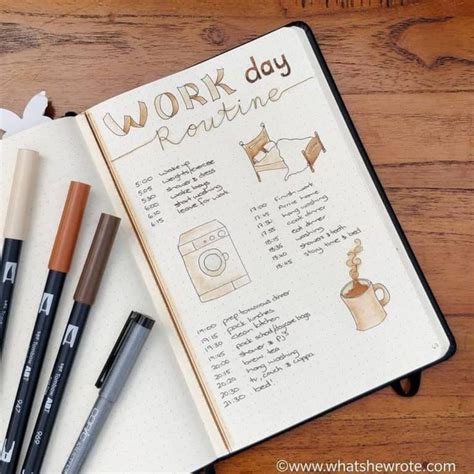 WORK day
Routine
5:00 wake up
5:05 weights/exercise
5:30 shower & dress
5:50 wake boys
6:10 start washing
6:15 leave for work
17:00 finish work
17:15 Arrive home
17:25 hang washing
17:30 cook dinner
18:15 eat dinner
18:35 washing
18:40 showers & teeth
18:45 story time & bed!
19:00 prep tomorrows dinner
19:15 pack lunches
19:30 clean kitchen
19:45 pack school/daycare bags
20:00 shower & PJs
20:15 brew tea
20:20 hang washing
20:30 tv, couch & cuppa
21:30 bed!
Tombow ABT
969
947
©www.whatshewrote.com